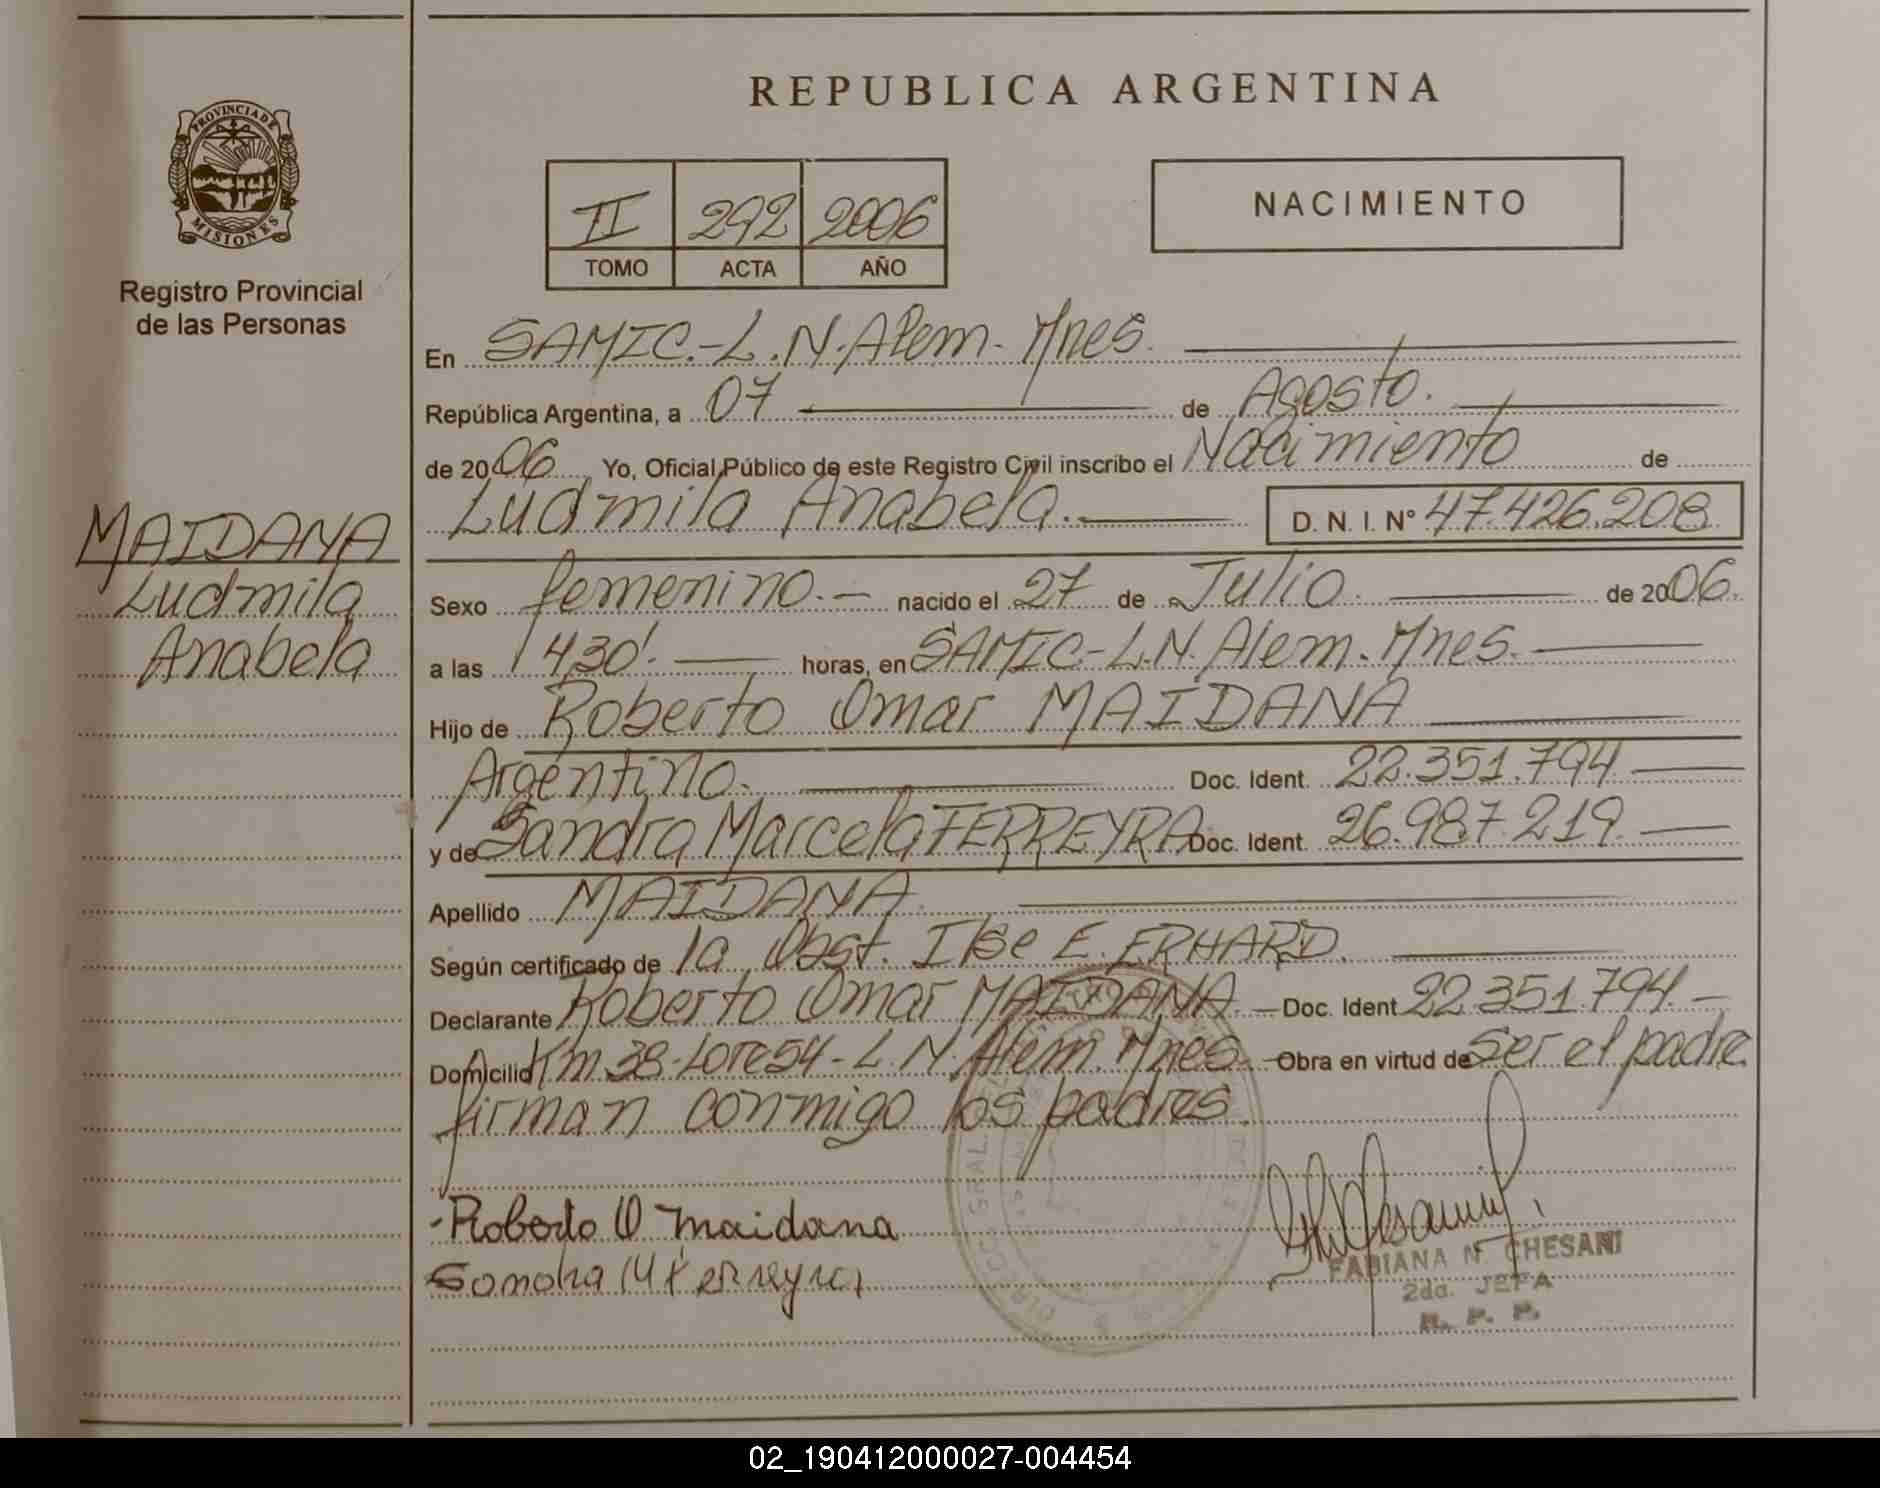 REPUBLICA ARGENTINA
PROVINCIA DE
MISIONES
Registro Provincial
de las Personas
II 292 2006
TOMO ACTA AÑO
NACIMIENTO
En SAMIC.-L.N.Alem. Mnes.
República Argentina, a 07 de Agosto.
de 2006 Yo, Oficial Público de este Registro Civil inscribo el Nacimiento de
Ludmila Anabela. D. N. I. N° 47.426.208
MAIDANA
Ludmila
Anabela
Sexo femenino.- nacido el 27 de Julio. de 2006.
a las 1430'. horas, en SAMIC.-L.N. Alem. Mnes.
Hijo de Roberto Omar MAIDANA
Argentino. Doc. Ident. 22.351.794
y de Sandra Marcela FERREYRA Doc. Ident. 26.987.219.
Apellido MAIDANA.
Según certificado de la Obst. Ilse E. ERHARD.
Declarante Roberto Omar MAIDANA.- Doc. Ident 22.351.794.-
Domicilio Km 38-Lote 54-L.N. Alem. Mnes. Obra en virtud de Ser el padre
firman conmigo los padres.
-Roberto O Maidana
FABIANA N. CHESANI
2da. JEFA
R. P. P.
02_190412000027-004454